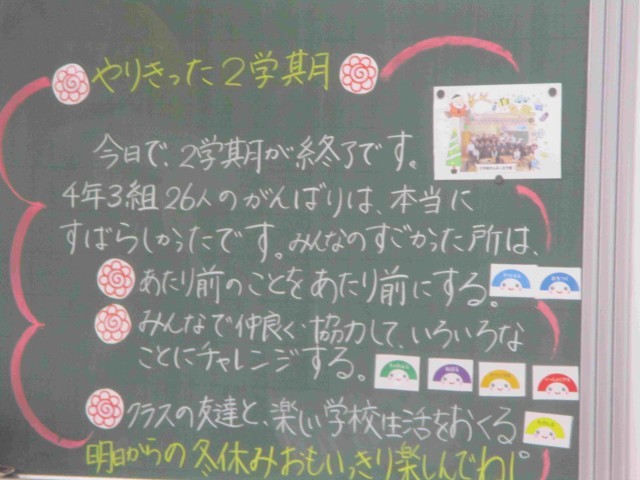 やりきった2学期
今日で、2学期が終了です。
4年3組26人のがんばりは、本当に
すばらしかったです。みんなのすごかった所は、
あたり前のことをあたり前にする。
みんなで仲良く協力して、いろいろな
ことにチャレンジする。
クラスの友達と、楽しい学校生活をおくる
明日からの冬休みおもいっきり楽しんでね!